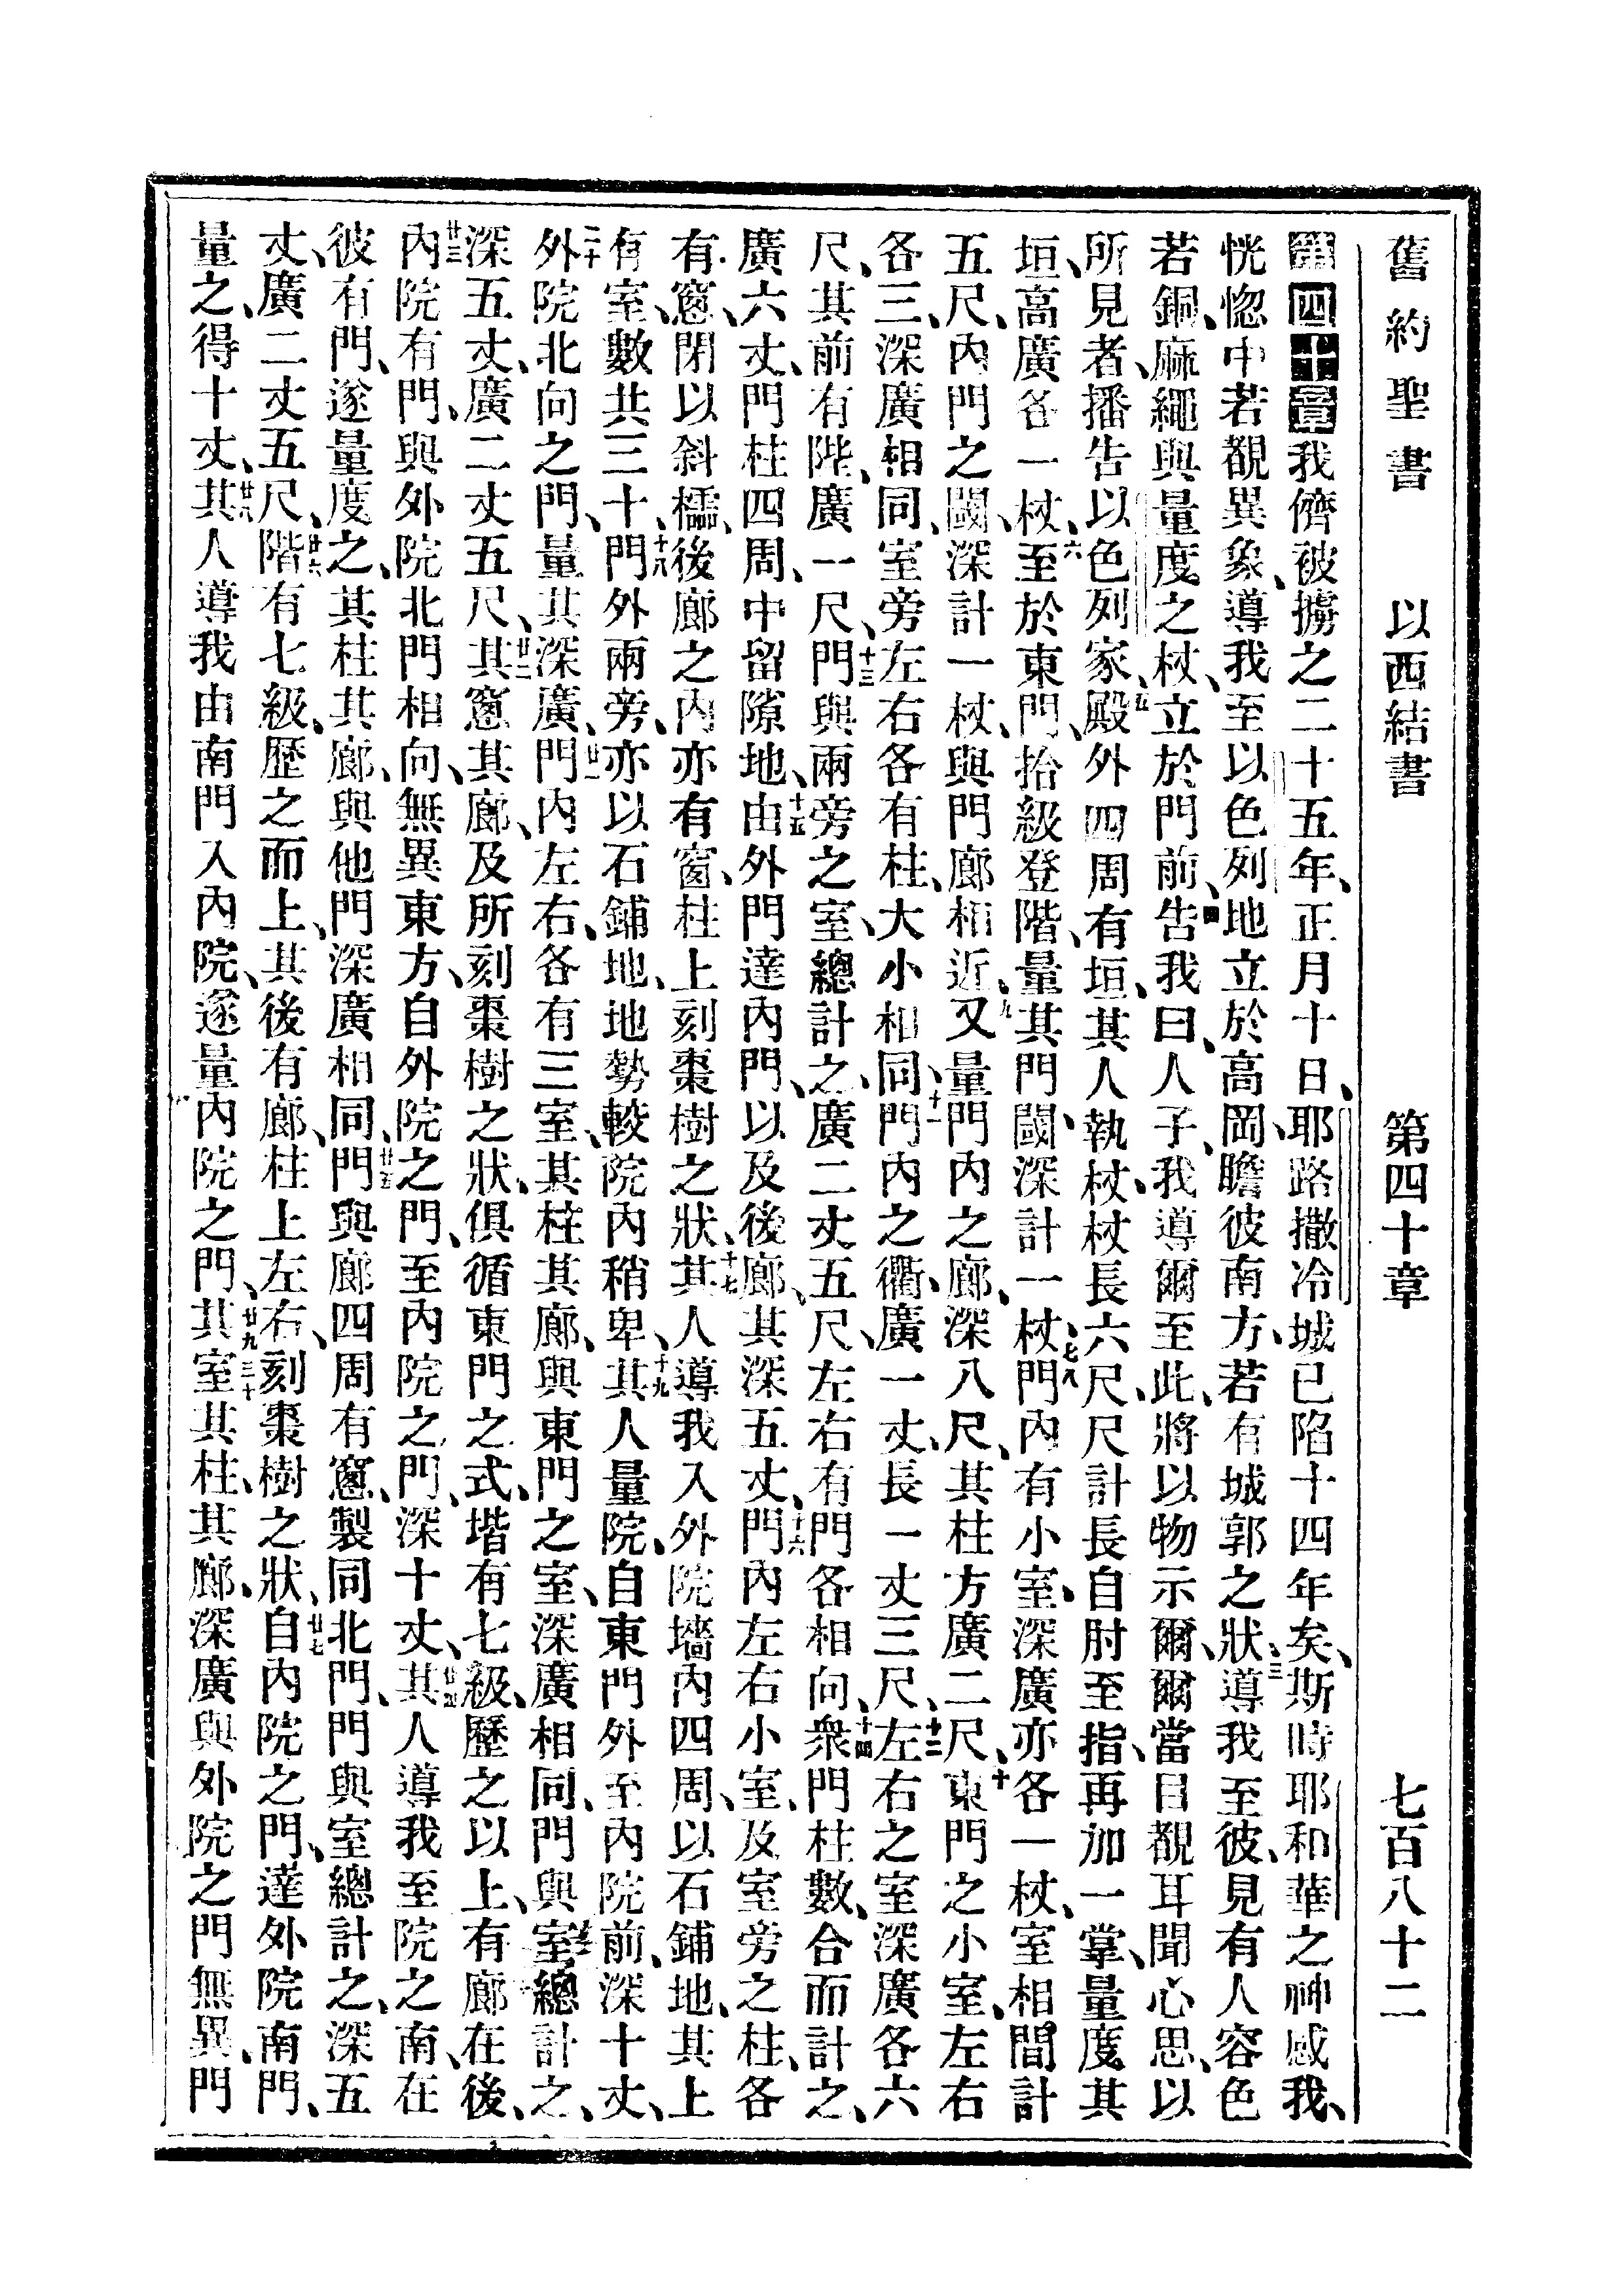 舊約聖書 以西結書 第四十章 七百八十二
第四十章我儕被擄之二十五年、正月十日、耶路撒冷城已陷十四年矣、斯時耶和華之神感我、
恍惚中若覩異象、導我至以色列地立於高岡、瞻彼南方、若有城郭之狀、三導我至彼、見有人容色
若銅、麻繩與量度之杖、立於門前、四告我曰、人子、我導爾至此、將以物示爾、爾當目覩耳聞心思、以
所見者、播告以色列家、五殿外四周有垣、其人執杖、杖長六尺、尺計長自肘至指、再加一掌、量度其
垣、高廣各一杖、六至於東門、拾級登階、量其門閾、深計一杖、七八門內有小室、深廣亦各一杖、室相間計
五尺、內門之閾、深計一杖、與門廊相近、九又量門內之廊、深八尺、其柱方廣二尺、十東門之小室、左右
各三、深廣相同、室旁左右各有柱、大小相同、十一門內之衢、廣一丈、長一丈三尺、十二左右之室深廣各六
尺、其前有陛、廣一尺、十三門與兩旁之室、總計之、廣二丈五尺、左右有門各相向、十四衆門柱數、合而計之、
廣六丈、門柱四周、中留隙地、十五由外門達內門、以及後廊、其深五丈、十六門內左右小室、及室旁之柱、各
有窻、閉以斜櫺、後廊之內亦有窗、柱上刻棗樹之狀、十七其人導我入外院、墻內四周、以石鋪地、其上
有室、數共三十、十八門外兩旁、亦以石鋪地、地勢較院內稍卑、十九其人量院、自東門外至內院前、深十丈、
二十外院北向之門、量其深廣、廿一門內左右、各有三室、其柱其廊、與東門之室、深廣相同、門與室總計之、
深五丈、廣二丈五尺、廿二其窻其廊、及所刻棗樹之狀、俱循東門之式、堦有七級、歷之以上、有廊在後、
廿三內院有門、與外院北門相向、無異東方、自外院之門、至內院之門、深十丈、廿四其人導我至院之南、在
彼有門、遂量度之、其柱其廊、與他門深廣相同、廿五門與廊四周有窻、製同北門、門與室總計之、深五
丈、廣二丈五尺、廿六階有七級、歷之而上、其後有廊、柱上左右、刻棗樹之狀、廿七自內院之門、達外院南門、
量之、得十丈、廿八其人導我由南門入內院、遂量內院之門、廿九三十其室其柱、其廊、深廣與外院之門無異、門